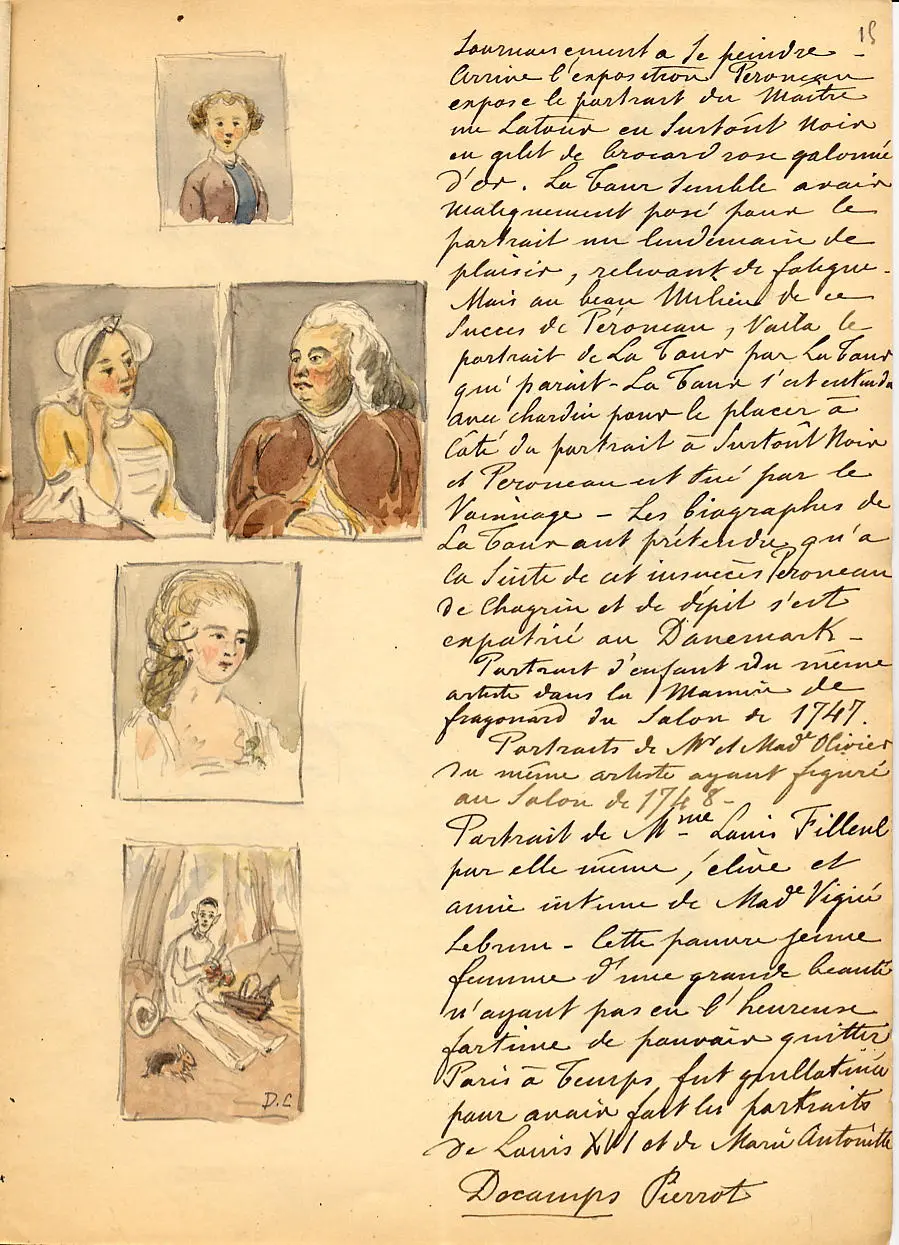 15
Sournoisement a se peindre -
Arrive l'exposition Peroneau
expose le portrait du Maître
un Latour en Surtôut Noir
en gilet de brocard rose galonné
d'or. La Tour Semble avoir
malignement posé pour le
portrait un lendemain de
plaisir, relevant de fatigue -
Mais au beau Milieu de ce
Succes de Péroneau, Voila le
portrait de La Tour par La Tour
qui parait - La Tour s'est entendu
avec chardin pour le placer à
Côté du portrait à Surtôut Noir
et Peroneau est tué par le
Voisinage - Les biographes de
La Tour ont prétendu qu'a
la Suite de cet insuccès Peroneau
de Chagrin et de dépit s'est
expatrié au Danemark -
Portrait d'enfant du même
artiste dans la Maniere de
fragonard du Salon de 1747.
Portraits de Mr et Made Olivier
du même artiste ayant figuré
au Salon de 1748 -
Portrait de Mme Louis Filleul
par elle même, élève et
amie intime de Made Vigié
Lebrun - Cette pauvre jeune
femme d'une grande beauté
n'ayant pas eu l'heureuse
fortune de pouvoir quitter
Paris à Temps, fut guillotinée
pour avoir fait les portraits
de Louis XVI et de Marie Antoinette
Decamps Pierrot
D.C